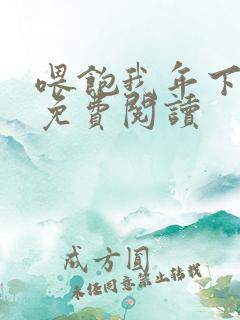 喂飽我 年下
免費閱讀
成方圓
未经同意禁止转载